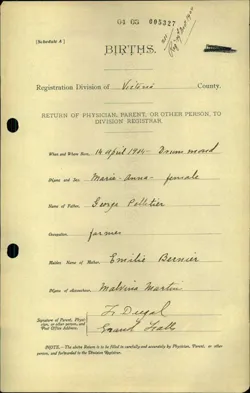 04 05 005327
(Schedule A)
BIRTHS.
Registration Division of Victoria County.
RETURN OF PHYSICIAN, PARENT, OR OTHER PERSON, TO
DIVISION REGISTRAR.
When and Where Born, 14 April 1904 Drummond
Name and Sex Marie-Anna- female
Name of Father, George Pelletier
Occupation farmer
Maiden Name of Mother, Emilie Bernier
Name of Malvina Martin
Signature of Parent, Physician, or other person, and Post Office Address.
Grand Falls
NOTE.—The above Return is to be filled in carefully and accurately by Physician, Parent, or
other person, and forwarded to the Division Registrar.